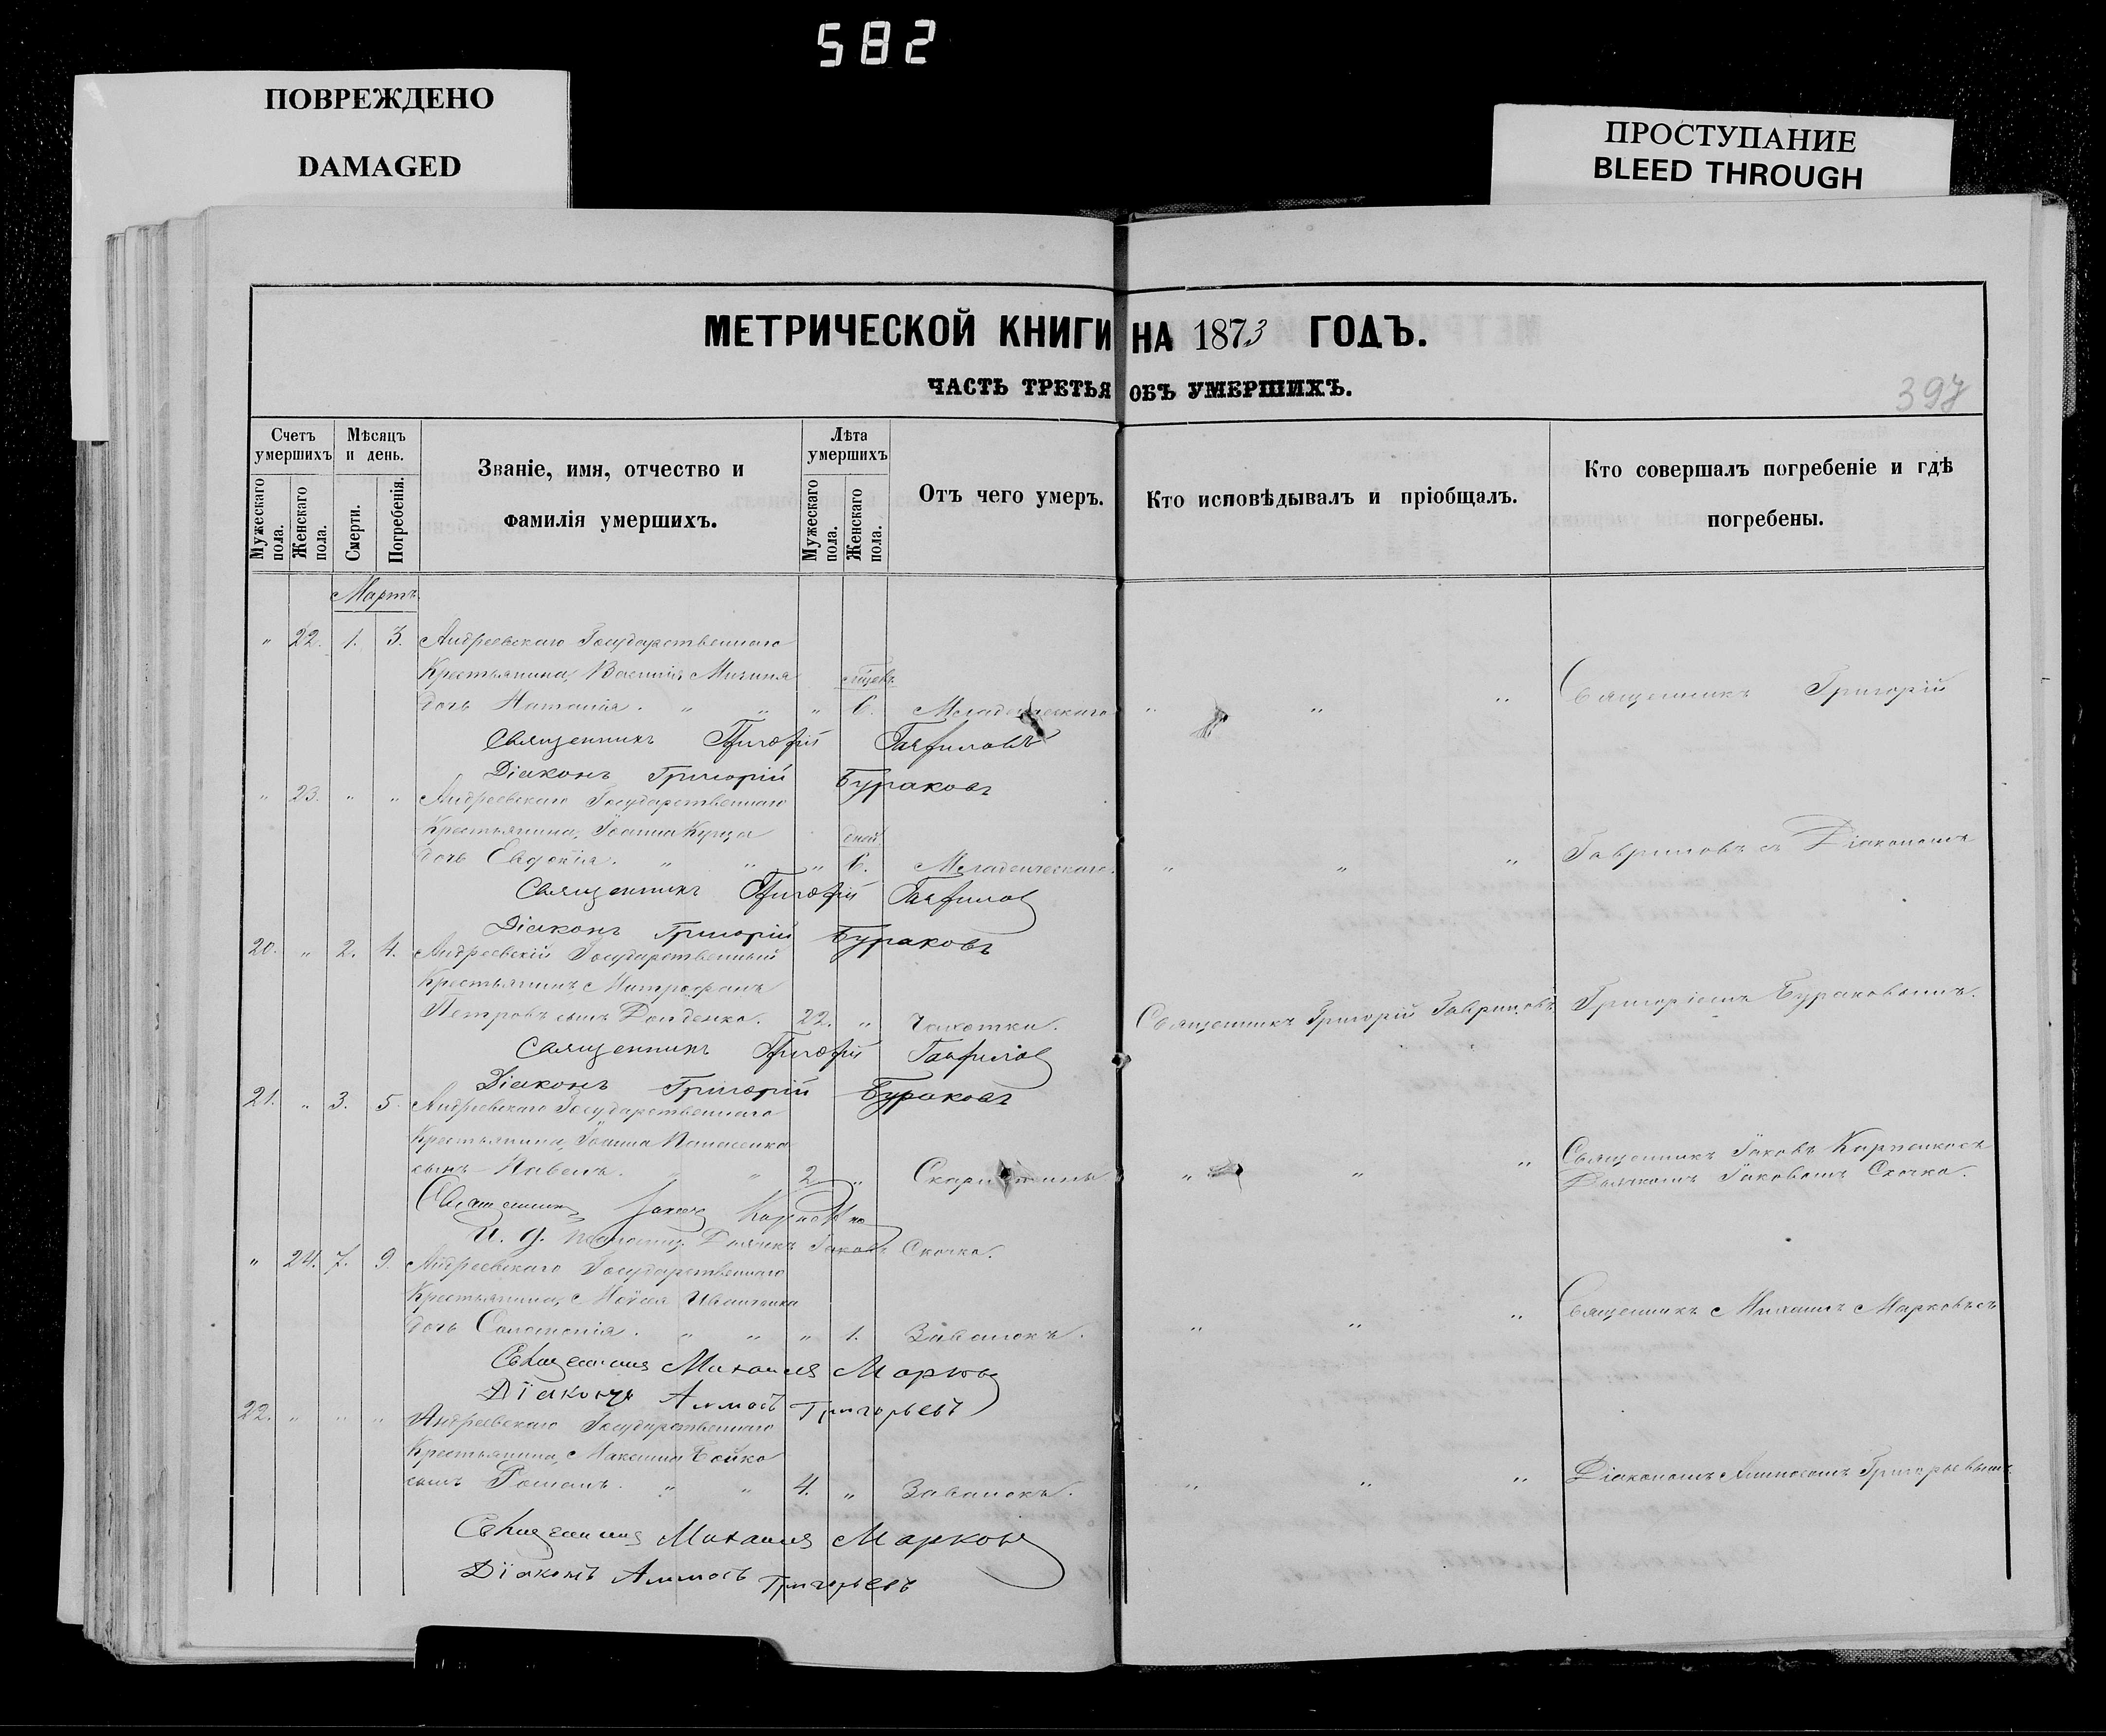 582
ПОВРЕЖДЕНО
DAMAGED
ПРОСТУПАНИЕ
BLEED THROUGH
МЕТРИЧЕСКОЙ КНИГИ НА 1873 ГОДЪ.
ЧАСТЬ ТРЕТЬЯ ОБЪ УМЕРШИХЪ.
397
Счетъ умершихъ
Мужескаго пола.
Женскаго пола.
Мѣсяцъ и день.
Смерти.
Погребенія.
Званіе, имя, отчество и
фамилія умершихъ.
Лѣта умершихъ
Мужескаго пола.
Женскаго пола.
Отъ чего умеръ.
Кто исповѣдывалъ и пріобщалъ.
Кто совершалъ погребеніе и гдѣ
погребены.
Мартъ
" 22. 1. 3. Андреевскаго Государственнаго
Крестьянина, Василія
дочь Наталія. " " " 6. Младенческаго " " " Священникъ Григорій
Священникъ Григорій Гавриловъ
Діаконъ Григорій Бураковъ
" 23. " " Андреевскаго Государственнаго
Крестьянина, Іоанна дней
дочь Евдокія. " " " 6. Младенческаго. " " " Гавриловъ съ Діакономъ
Священникъ Григорій Гаврилов
Діаконъ Григорій Бураковъ
20. " 2. 4. Андреевскій Государственный
Крестьянинъ, Митрофанъ
Петровъ сынъ 22. " Чахотки. Священникъ Григорій Гавриловъ Григоріемъ Бураковымъ.
Священникъ Григорій Гаврилов
Діаконъ Григорій Бураковъ
21. " 3. 5. Андреевскаго Государственнаго
Крестьянина, Іоанна Панасенка
сынъ Павелъ. " " 2. " Скарлатины " " " Священникъ Іаковъ
Дьячкомъ Іаковомъ Скочко.
Священникъ Іаковъ
И. д. Псаломщ. Дьячекъ Іаковъ Скочко.
" 24. 7. 9. Андреевскаго Государственнаго
Крестьянина, Моѵсея
дочь Соломонія. " " " 1. Завалокъ. " " " Священникъ Михаилъ Марковъ съ
Священникъ Михаилъ Марков
Діаконъ Аммосъ Григорьевъ
22. " " " Андреевскаго Государственнаго
Крестьянина, Максима Бойко
сынъ Романъ. " " 4. " Завалокъ. " " " Діакономъ Аммосомъ Григорьевымъ
Священникъ Михаилъ Марков
Діаконъ Аммосъ Григорьевъ